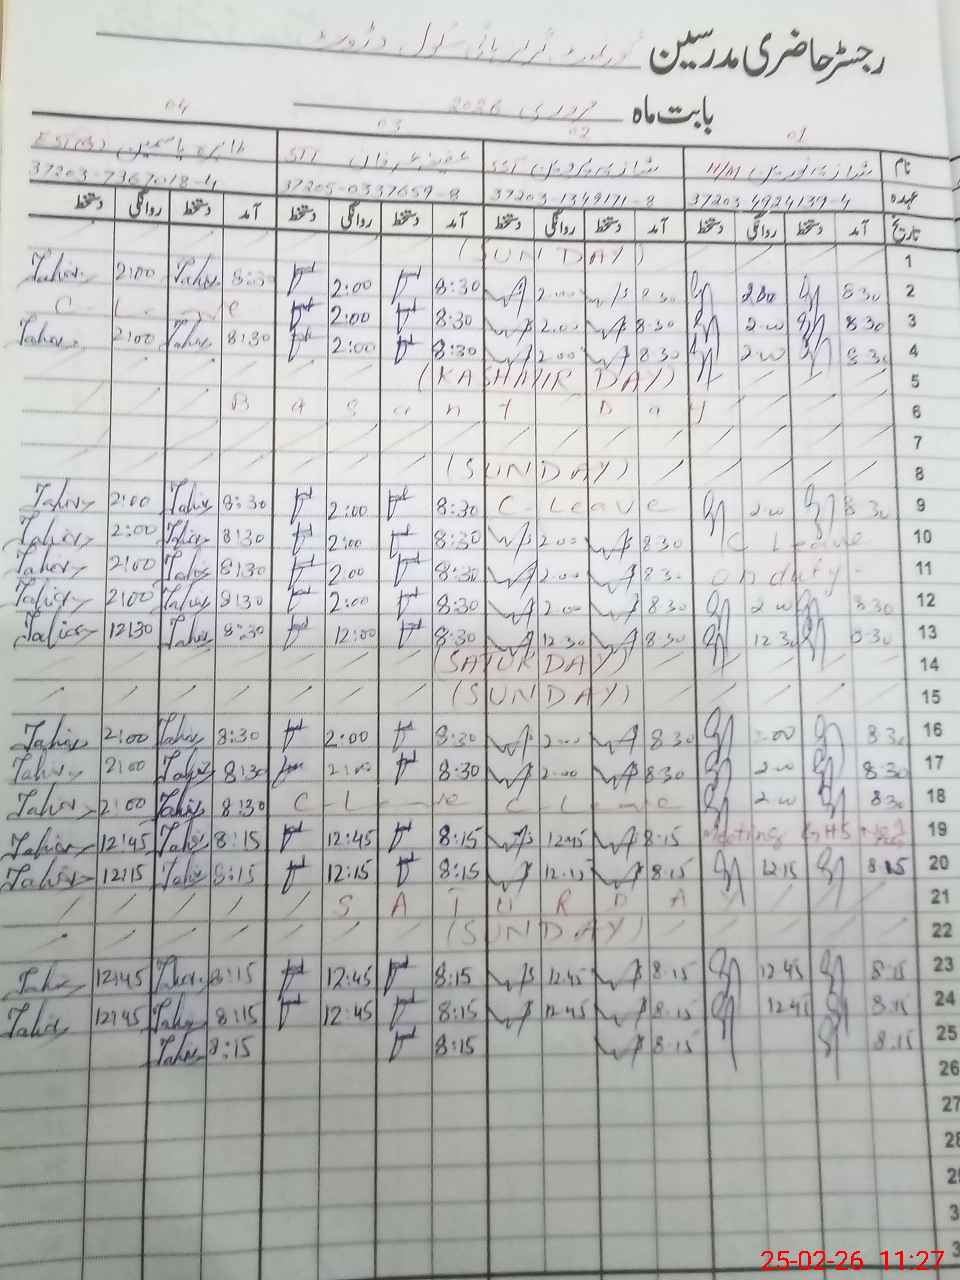 رجسٹر حاضری مدرسین گورنمنٹ گرلز ہائی سکول
بابت ماہ فروری 2026
01 02 03 04
نام H/M SST STI EST
عہدہ 37203-4924139-4 37203-1349171-8 37205-0337659-8 37203-7367018-4
تاریخ آمد دستخط روانگی دستخط آمد دستخط روانگی دستخط آمد دستخط روانگی دستخط آمد دستخط روانگی دستخط
1 (SUNDAY)
2 8:30 2:00 8:30 2:00 8:30 2:00 8:30 Tahir 2:00 Tahir
3 8:30 2:00 8:30 2:00 8:30 2:00 C-L
4 8:30 2:00 8:30 2:00 8:30 2:00 8:30 Tahir 2:00 Tahir
5 (KASHMIR DAY)
6 Basant Day
7
8 (SUNDAY)
9 8:30 2:00 C-Leave 8:30 2:00 8:30 Tahir 2:00 Tahir
10 C Leave 8:30 2:00 8:30 2:00 8:30 Tahir 2:00 Tahir
11 on duty 8:30 2:00 8:30 2:00 8:30 Tahir 2:00 Tahir
12 8:30 2:00 8:30 2:00 8:30 2:00 8:30 Tahir 2:00 Tahir
13 8:30 12:30 8:30 12:30 8:30 12:00 8:30 Tahir 12:30 Tahir
14 (SATURDAY)
15 (SUNDAY)
16 8:30 2:00 8:30 2:00 8:30 2:00 8:30 Tahir 2:00 Tahir
17 8:30 2:00 8:30 2:00 8:30 2:00 8:30 Tahir 2:00 Tahir
18 8:30 2:00 C-Leave C-Leave 8:30 Tahir 2:00 Tahir
19 Meeting GHS 8:15 12:45 8:15 12:45 8:15 Tahir 12:45 Tahir
20 8:15 12:15 8:15 12:15 8:15 12:15 8:15 Tahir 12:15 Tahir
21 SATURDAY
22 (SUNDAY)
23 8:15 12:45 8:15 12:45 8:15 12:45 8:15 Tahir 12:45 Tahir
24 8:15 12:45 8:15 12:45 8:15 12:45 8:15 Tahir 12:45 Tahir
25 8:15 8:15 8:15 8:15 Tahir
26
27
28
25-02-26 11:27